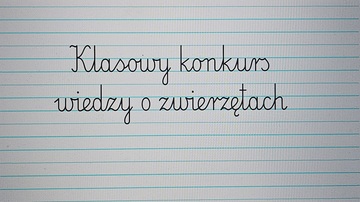 Klasowy konkurs
wiedzy o zwierzętach